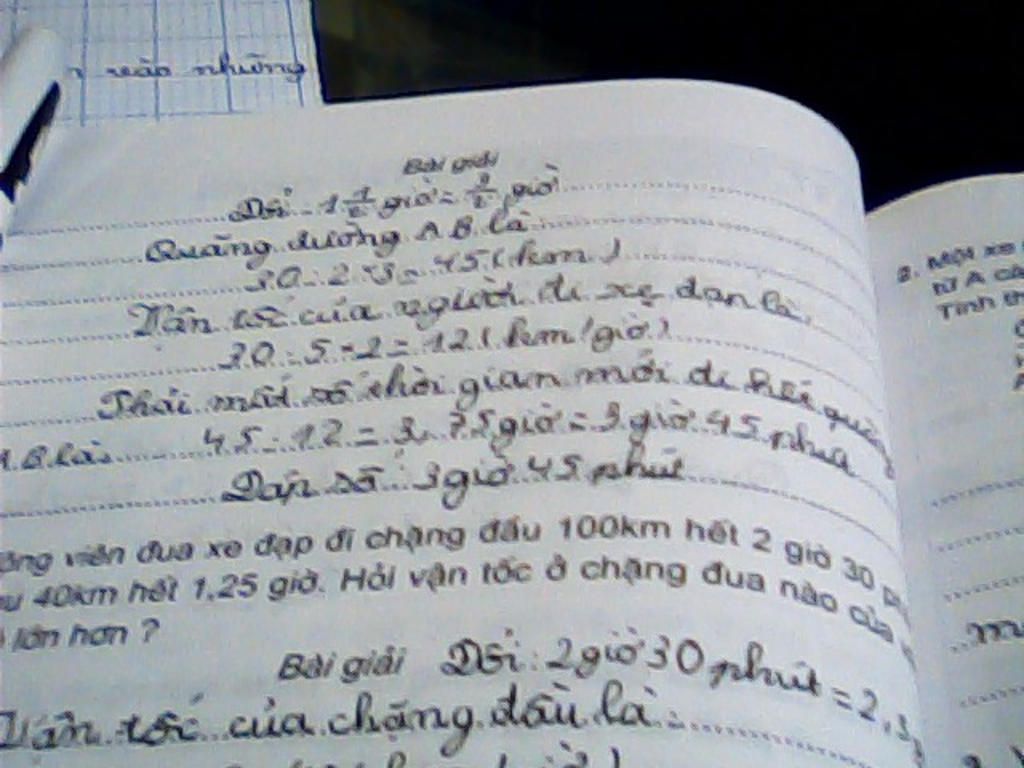 vào những
Bài giải
Đổi 1 1/2 giờ = 3/2 giờ
Quãng đường AB là
30 : 2 × 3 = 45 (km)
Vận tốc của người đi xe đạp là
30 : 5 × 2 = 12 (km/giờ)
Thời mất số thời gian mới đi hết quãng
AB là 45 : 12 = 3,75 giờ = 3 giờ 45 phút
Đáp số : 3 giờ 45 phút
viên đua xe đạp đi chặng đầu 100km hết 2 giờ 30
40km hết 1,25 giờ. Hỏi vận tốc ở chặng đua nào của
lớn hơn ?
Bài giải Đổi : 2 giờ 30 phút = 2,
Vận tốc của chặng đầu là :
2. Một xe
từ A
Tính